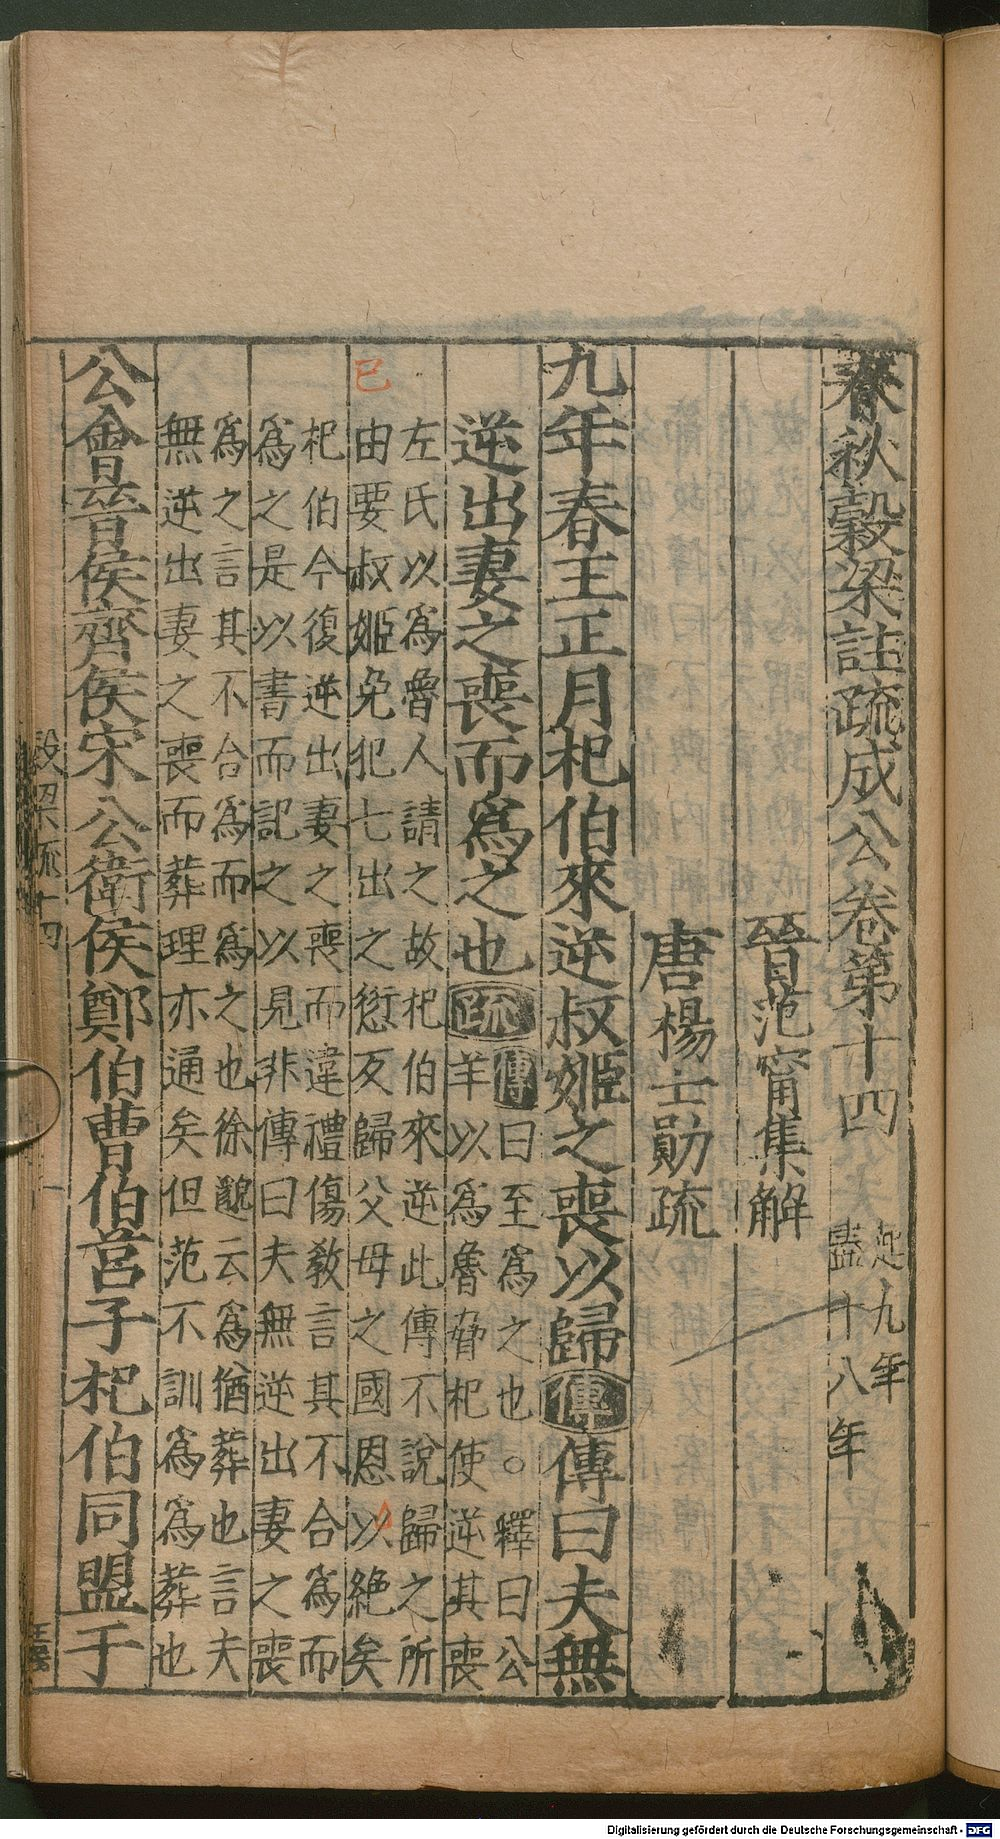 春秋穀梁註疏成公卷第十四 起九年
盡十八年
晉范甯集解
唐楊士勛疏
九年春王正月杞伯來逆叔姬之喪以歸傳傳曰夫無
逆出妻之喪而爲之也疏傳曰至爲之也○釋曰公
羊以爲魯脅杞使逆其喪
左氏以爲魯人請之故杞伯來逆此傳不說歸之所
由要叔姬免犯七出之愆反歸父母之國恩以絶矣
已
杞伯今復逆出妻之喪而違禮傷教言其不合爲而
爲之是以書而記之以見非傳曰夫無逆出妻之喪
爲之言其不合爲而爲之也徐邈云爲猶葬也言夫
無逆出妻之喪而葬理亦通矣但范不訓爲爲葬也
公會晉侯齊侯宋公衛侯鄭伯曹伯莒子杞伯同盟于
Digitalisierung gefördert durch die Deutsche Forschungsgemeinschaft - DFG